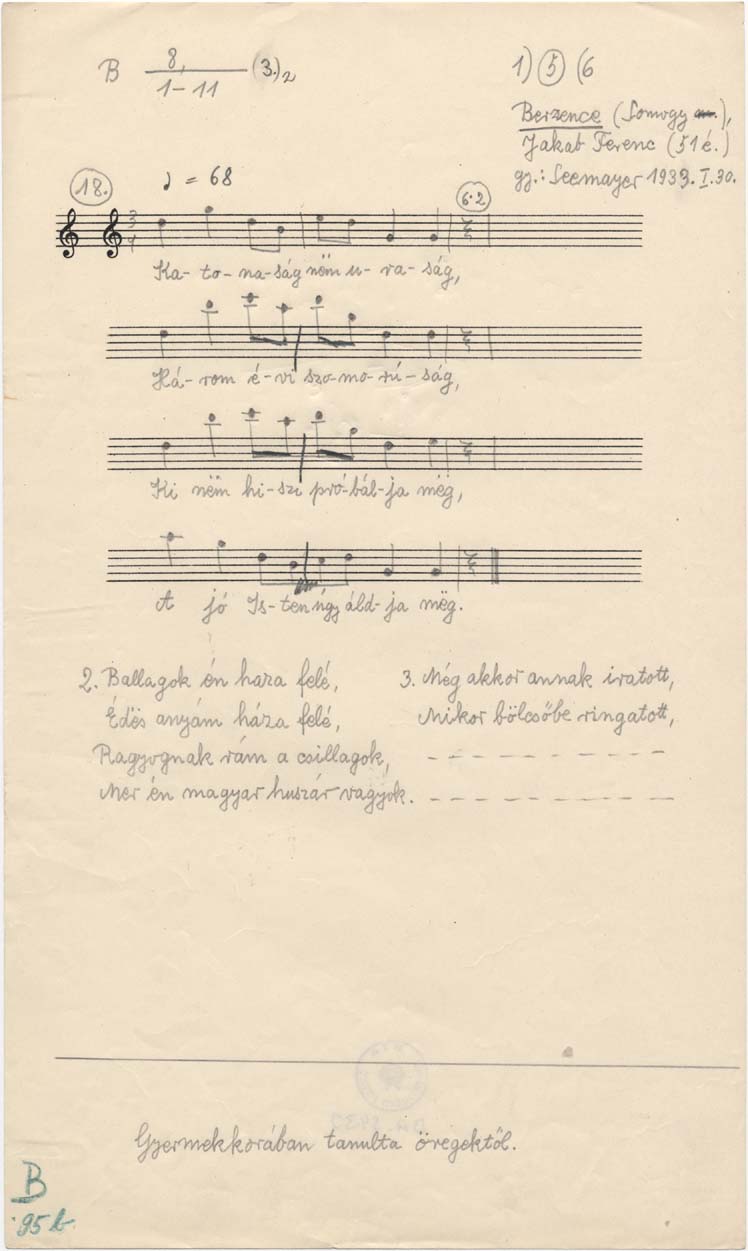 B 8, / 1-11 (3.)2
1) 5 (6
Berzence (Somogy m.),
Jakab Ferenc (51 é.)
gy.: Seemayer 1933. I. 30.
18. ♩ = 68
6·2
3/4
Ka- to- na-ság nëm u- ra- ság,
Há- rom é- vi szo-mo-rú- ság,
Ki nëm hi-szi pró-bál-ja mëg,
A jó Is-ten úgy áld-ja mëg.
2. Ballagok én haza felé,
Édës anyám háza felé,
Ragyognak rám a csillagok,
Mer én magyar huszár vagyok.
3. Még akkor annak iratott,
Mikor bölcsőbe ringatott,
Gyermekkorában tanulta öregektől.
B
95 b.